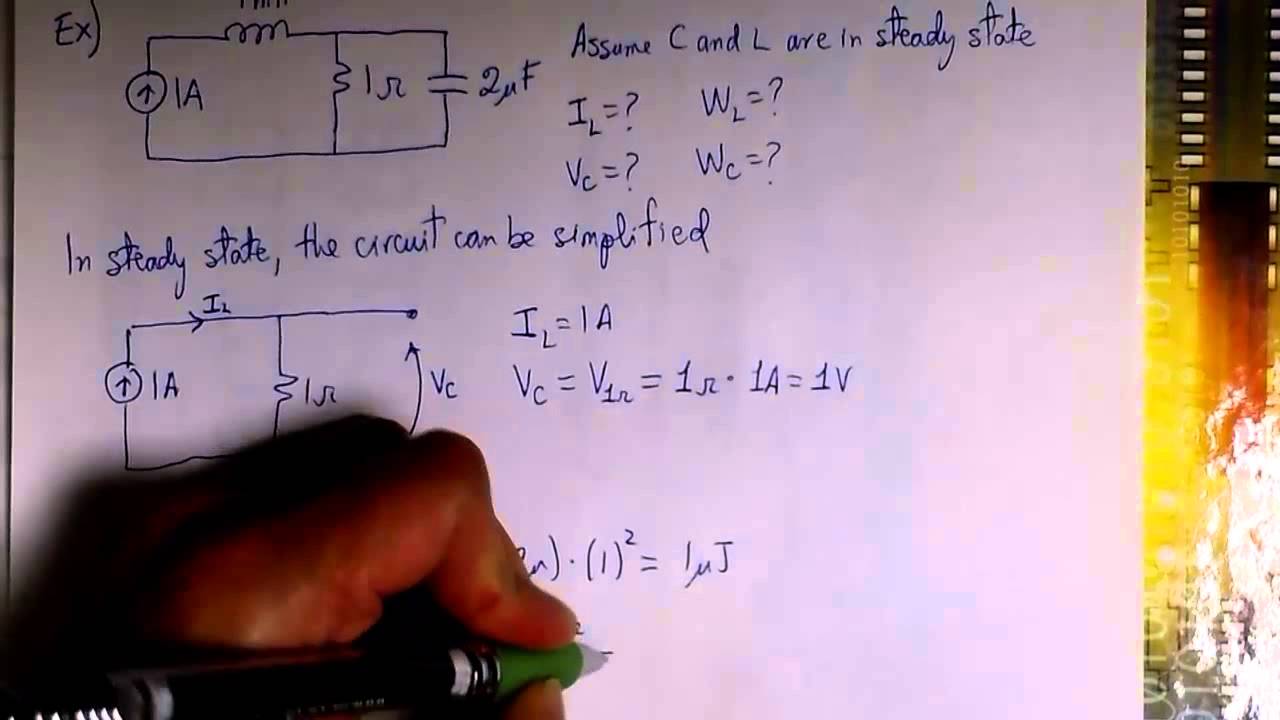 Ex)
Assume C and L are in steady state
1A
1Ω
2μF
I_L=? W_L=?
V_C=? W_C=?
In steady state, the circuit can be simplified
I_L
1A
1Ω
V_C
I_L=1A
V_C = V_1Ω = 1Ω · 1A = 1V
μ) · (1)² = 1μJ
10101010